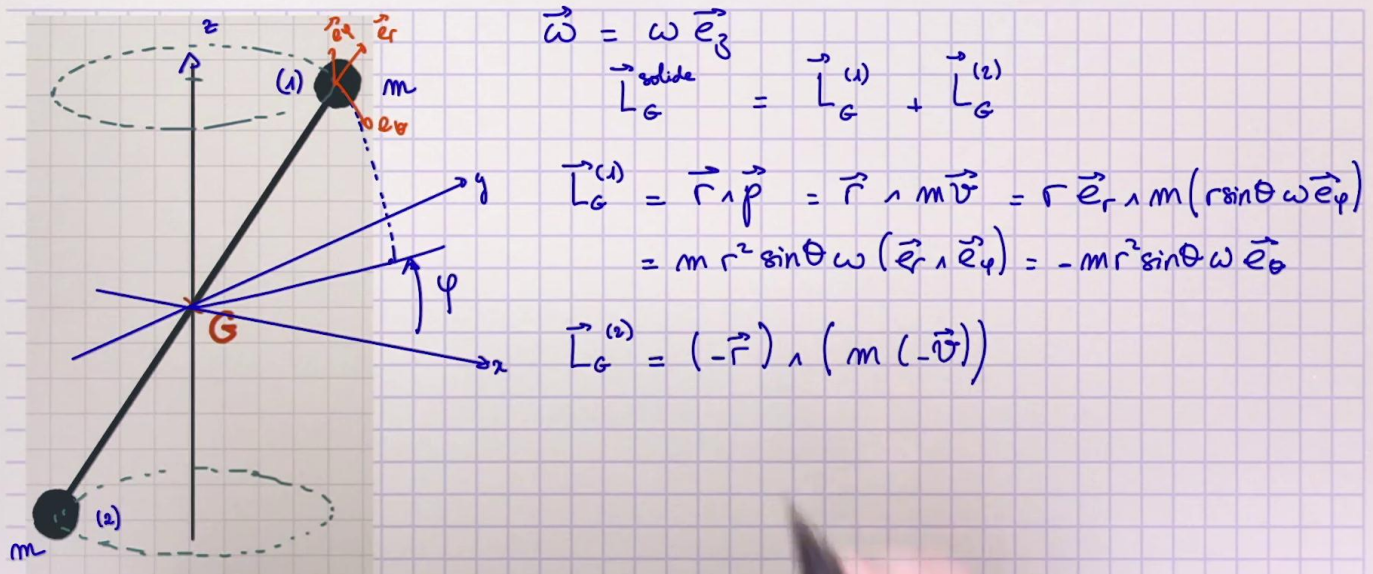 z
e⃗φ e⃗r
(1) m
eθ
y
φ
G
x
(2)
m
ω⃗ = ω e⃗z
L⃗G^solide = L⃗G^(1) + L⃗G^(2)
L⃗G^(1) = r⃗ ∧ p⃗ = r⃗ ∧ mv⃗ = r e⃗r ∧ m(r sinθ ω e⃗φ)
= m r² sinθ ω (e⃗r ∧ e⃗φ) = - m r² sinθ ω e⃗θ
L⃗G^(2) = (-r⃗) ∧ (m (-v⃗))